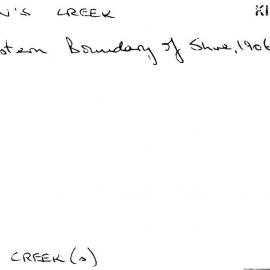 N'S CREEK KI
stern Boundary of Shire, 1906
CREEK(s)